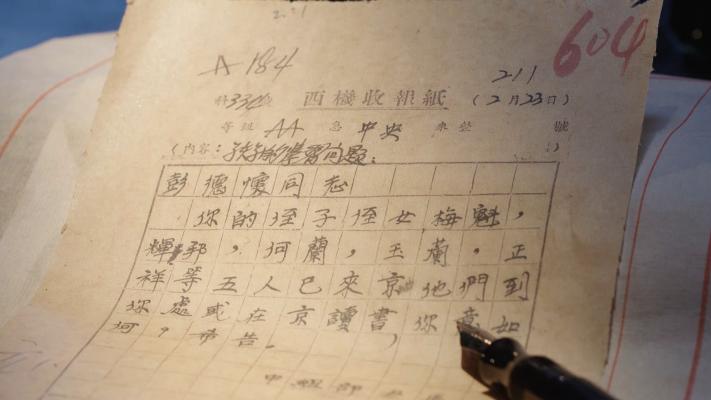 604
A 184
211
西機收報紙 (2月23日)
等級 AA 急 中央 號
(内容:孩子的學習问題。)
彭德懷同志
你的侄子侄女梅魁,
輝邦,何蘭,玉蘭,正
祥等五人已來京他們到
你處或在京讀書,你意如
何,希告。
中組部